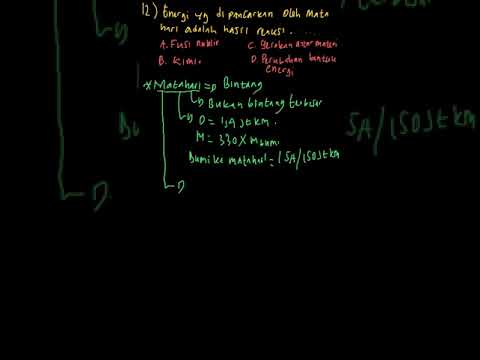 12) Energi yg dipancarkan oleh mata
hari adalah hasil reaksi. ....
A. Fusi nuklir C. Gerakan antar materi
B. Kimia D. Perubahan bentuk
energi
* Matahari => Bintang
Bukan bintang terbesar
D = 1,4 Jt km.
M = 330 x M bumi
Bumi ke matahari = 1 SA/150 Jt km
SA/150Jt km